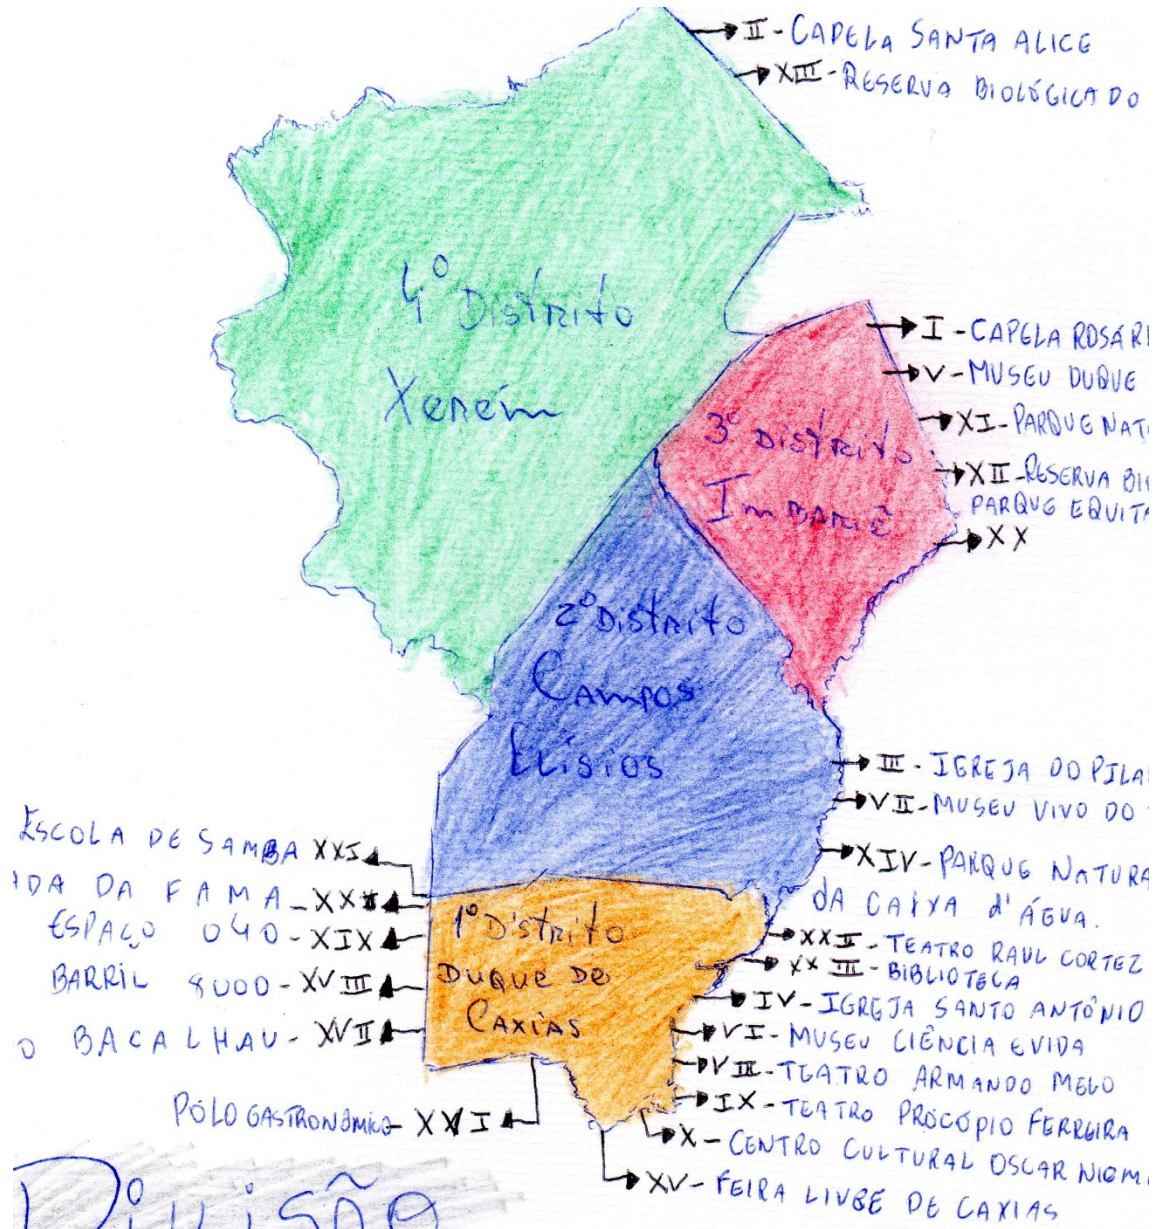 II - CAPELA SANTA ALICE
XIII - RESERVA BIOLÓGICA DO
4º Distrito
Xerém
I - CAPELA ROSÁRI
V - MUSEU DUQUE
XI - PARQUE NAT
XII - RESERVA BI
PARQUE EQUITA
XX
3º Distrito
Imbariê
2º Distrito
Campos
Elísios
III - IGREJA DO PILA
VII - MUSEU VIVO DO
XIV - PARQUE NATURA
DA CAIXA d'ÁGUA.
ESCOLA DE SAMBA XXI
ADA DA FAMA - XX
ESPAÇO 040 - XIX
BARRIL 8000 - XVIII
O BACALHAU - XVII
PÓLO GASTRONÔMICO - XVI
1º Distrito
DUQUE DE
CAXIAS
XXII - TEATRO RAUL CORTEZ
XXIII - BIBLIOTECA
IV - IGREJA SANTO ANTÔNIO
VI - MUSEU CIÊNCIA E VIDA
VIII - TEATRO ARMANDO MELO
IX - TEATRO PROCÓPIO FERREIRA
X - CENTRO CULTURAL OSCAR NIEM
XV - FEIRA LIVRE DE CAXIAS
Divisão